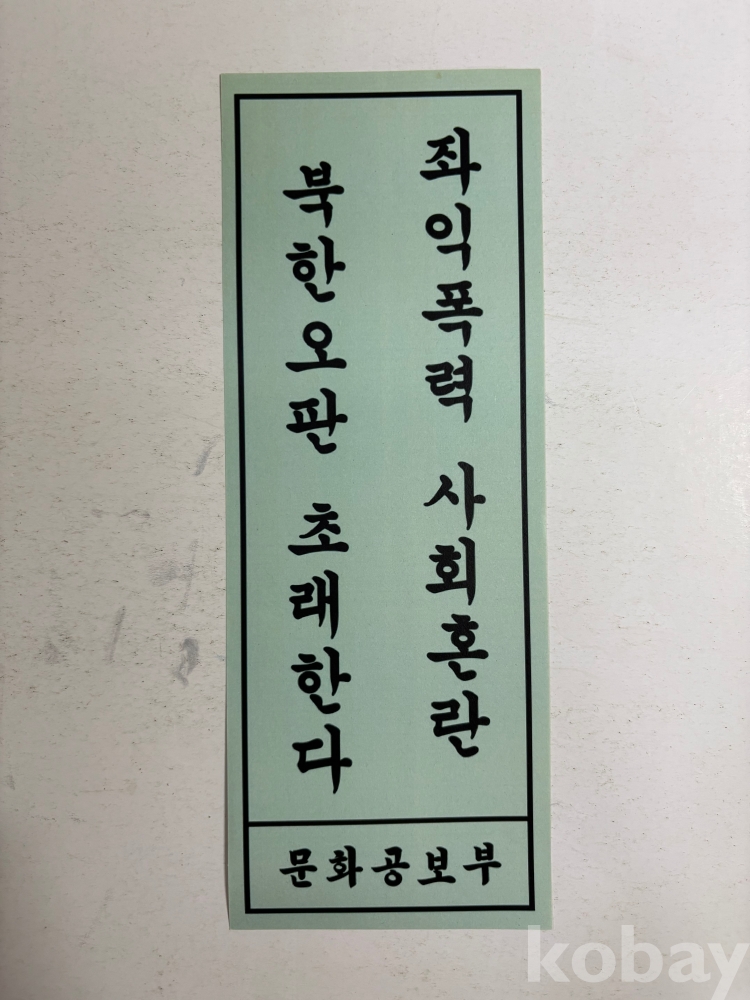 좌익폭력 사회혼란
북한오판 초래한다
문화공보부
kobay